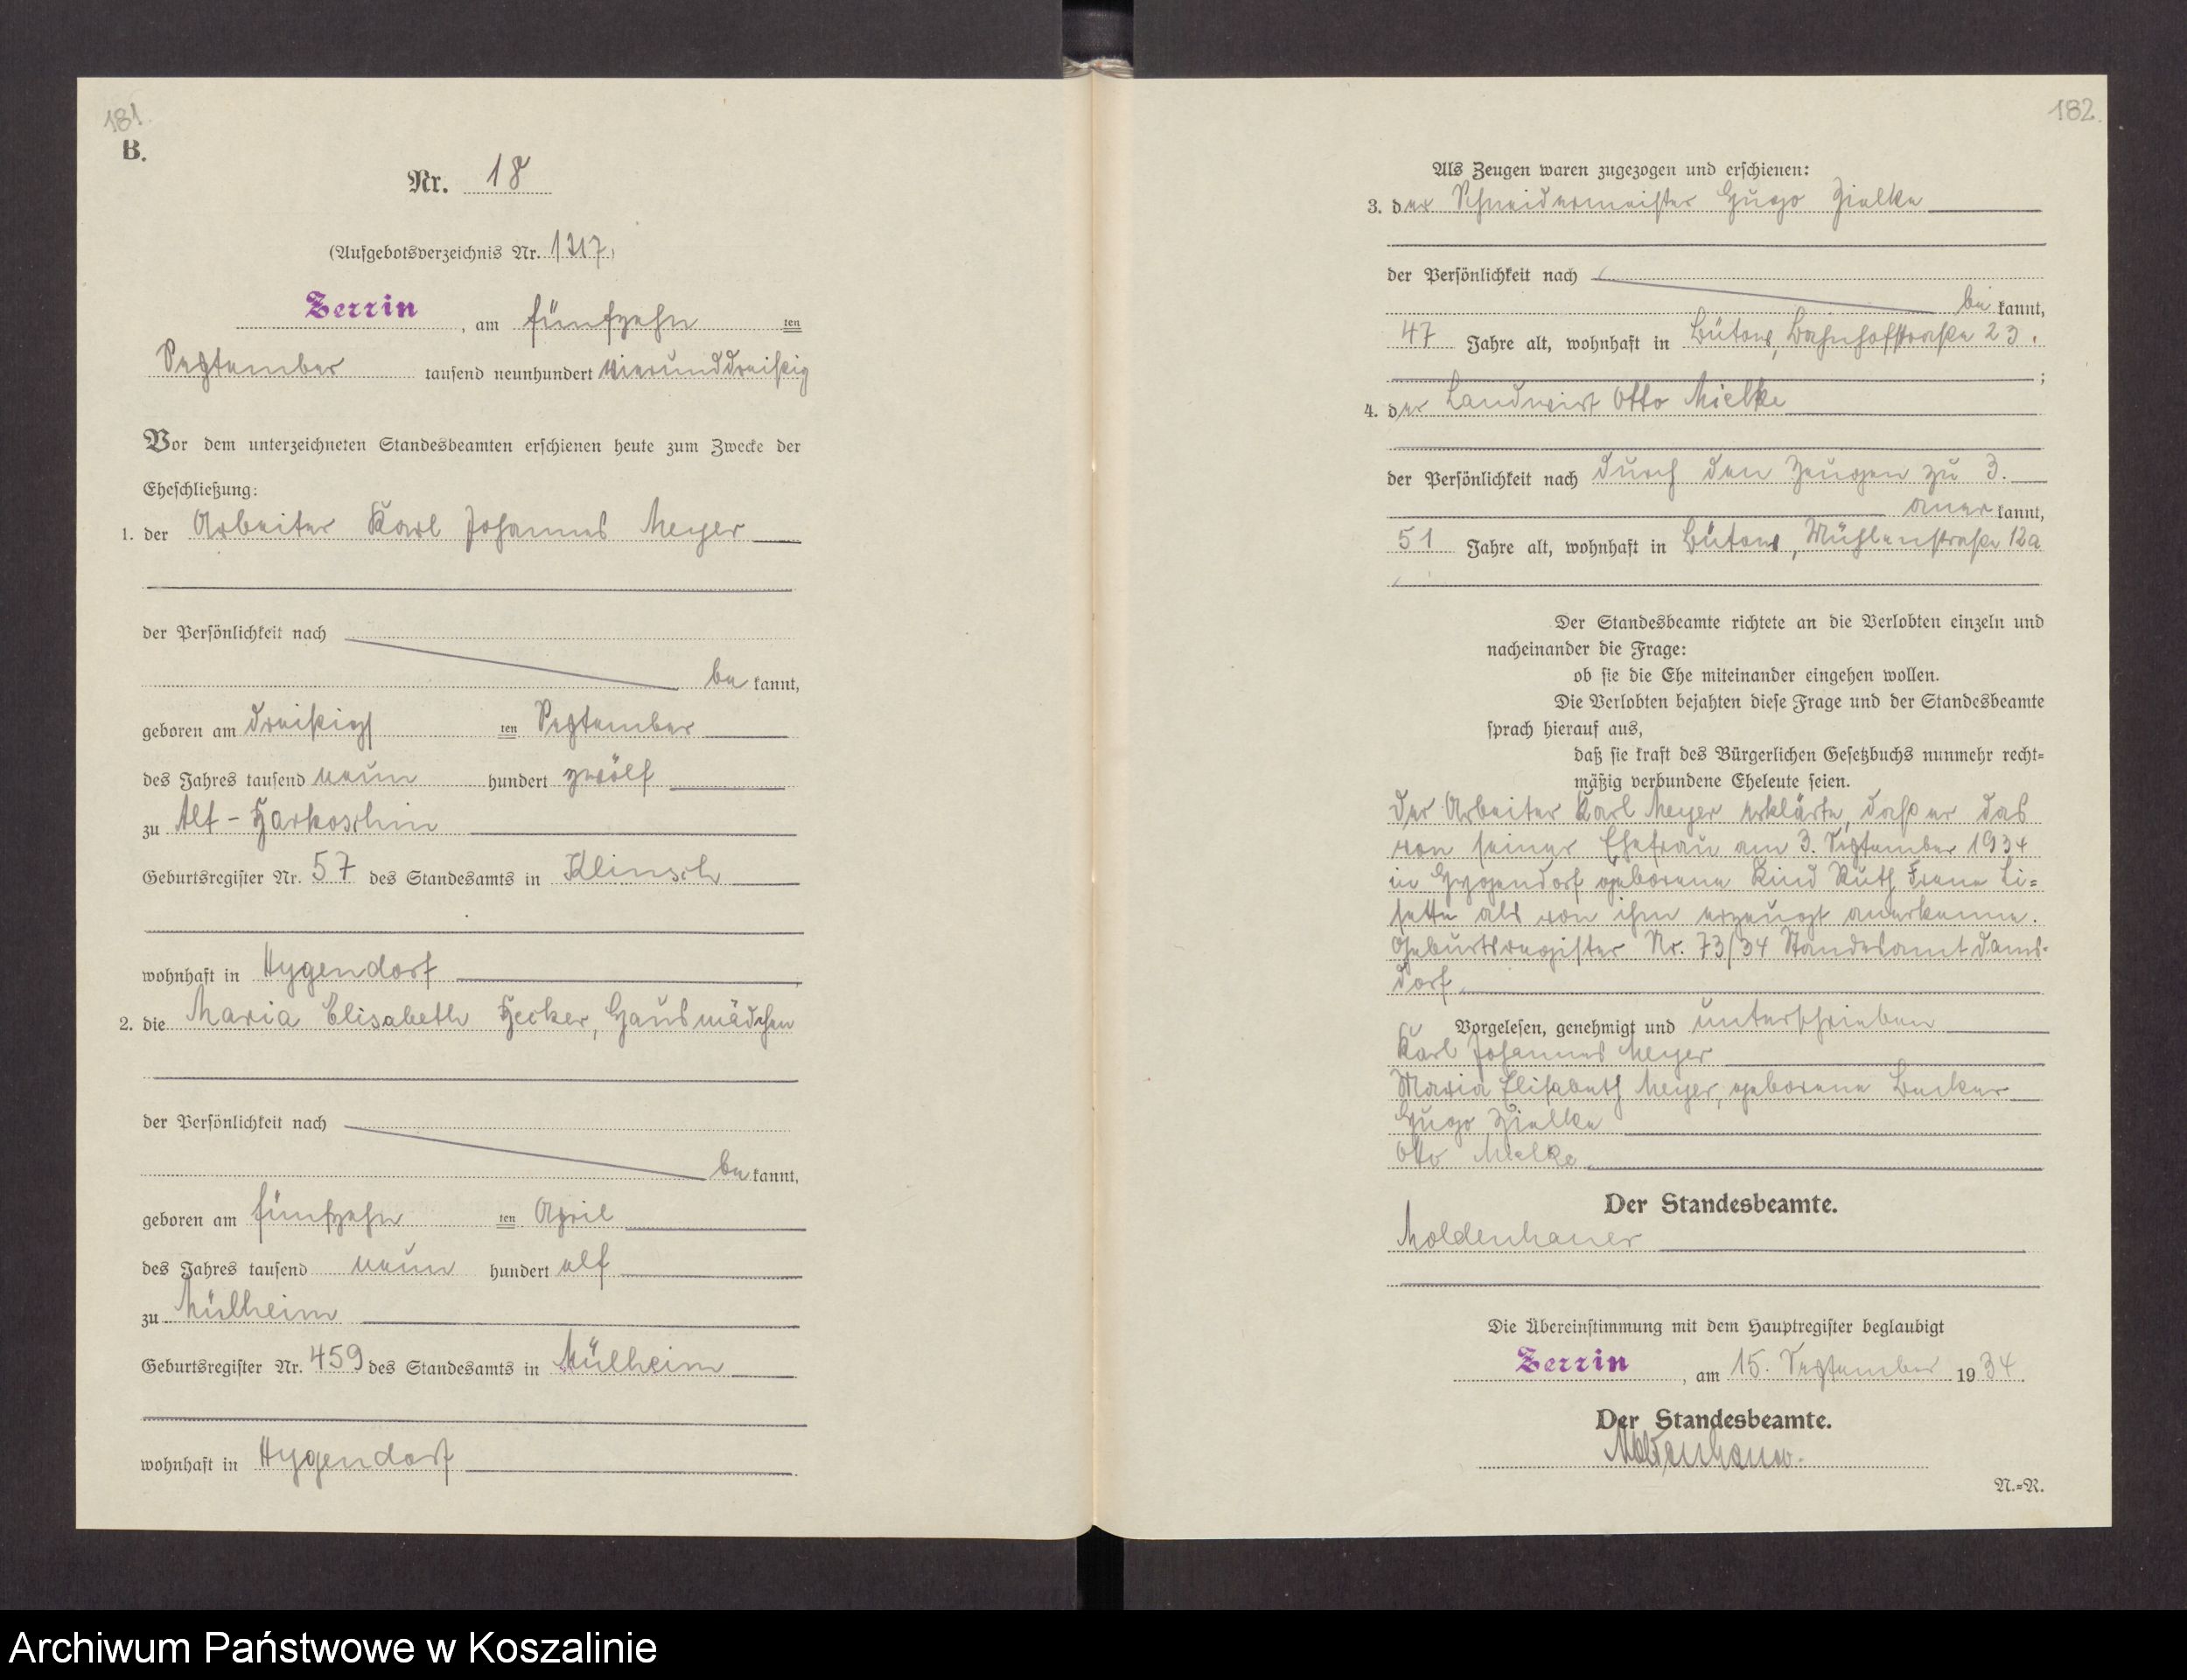 181.
B.
Nr. 18
(Aufgebotsverzeichnis Nr. 1217)
Zerrin, am fünfzehnten
September tausend neunhundert vierunddreißig
Vor dem unterzeichneten Standesbeamten erschienen heute zum Zwecke der
Eheschließung:
1. der Arbeiter Karl Johannes Meyer
der Persönlichkeit nach
bekannt,
geboren am dreißigsten September
des Jahres tausend neunhundert zwölf
zu Alt-
Geburtsregister Nr. 57 des Standesamts in Klinsch
wohnhaft in Hygendorf
2. die Maria Elisabeth Becker, Hausmädchen
der Persönlichkeit nach
bekannt,
geboren am fünfzehnten April
des Jahres tausend neunhundert elf
zu Mülheim
Geburtsregister Nr. 459 des Standesamts in Mülheim
wohnhaft in Hygendorf
182.
Als Zeugen waren zugezogen und erschienen:
3. der Schneidermeister Hugo Zielke
der Persönlichkeit nach
bekannt,
47 Jahre alt, wohnhaft in Bütow, Bahnhofstraße 23.
;
4. der Landwirt Otto Mielke
der Persönlichkeit nach durch den Zeugen zu 3.
anerkannt,
51 Jahre alt, wohnhaft in Bütow, Mühlenstraße 12a
Der Standesbeamte richtete an die Verlobten einzeln und
nacheinander die Frage:
ob sie die Ehe miteinander eingehen wollen.
Die Verlobten bejahten diese Frage und der Standesbeamte
sprach hierauf aus,
daß sie kraft des Bürgerlichen Gesetzbuchs nunmehr recht=
mäßig verbundene Eheleute seien.
Der Arbeiter Karl Meyer erklärte, daß er das
von seiner Ehefrau am 3. September 1934
in Hygendorf geborene Kind Ruth Irene Li=
sette als von ihm erzeugt anerkenne.
Geburtsregister Nr. 73/34 Standesamt Dams-
dorf.
Vorgelesen, genehmigt und unterschrieben
Karl Johannes Meyer
Maria Elisabeth Meyer, geborene Becker
Hugo Zielke
Otto Mielke
Der Standesbeamte.
Moldenhauer
Die Übereinstimmung mit dem Hauptregister beglaubigt
Zerrin, am 15. September 1934.
Der Standesbeamte.
Moldenhauer.
N.=R.
Archiwum Państwowe w Koszalinie